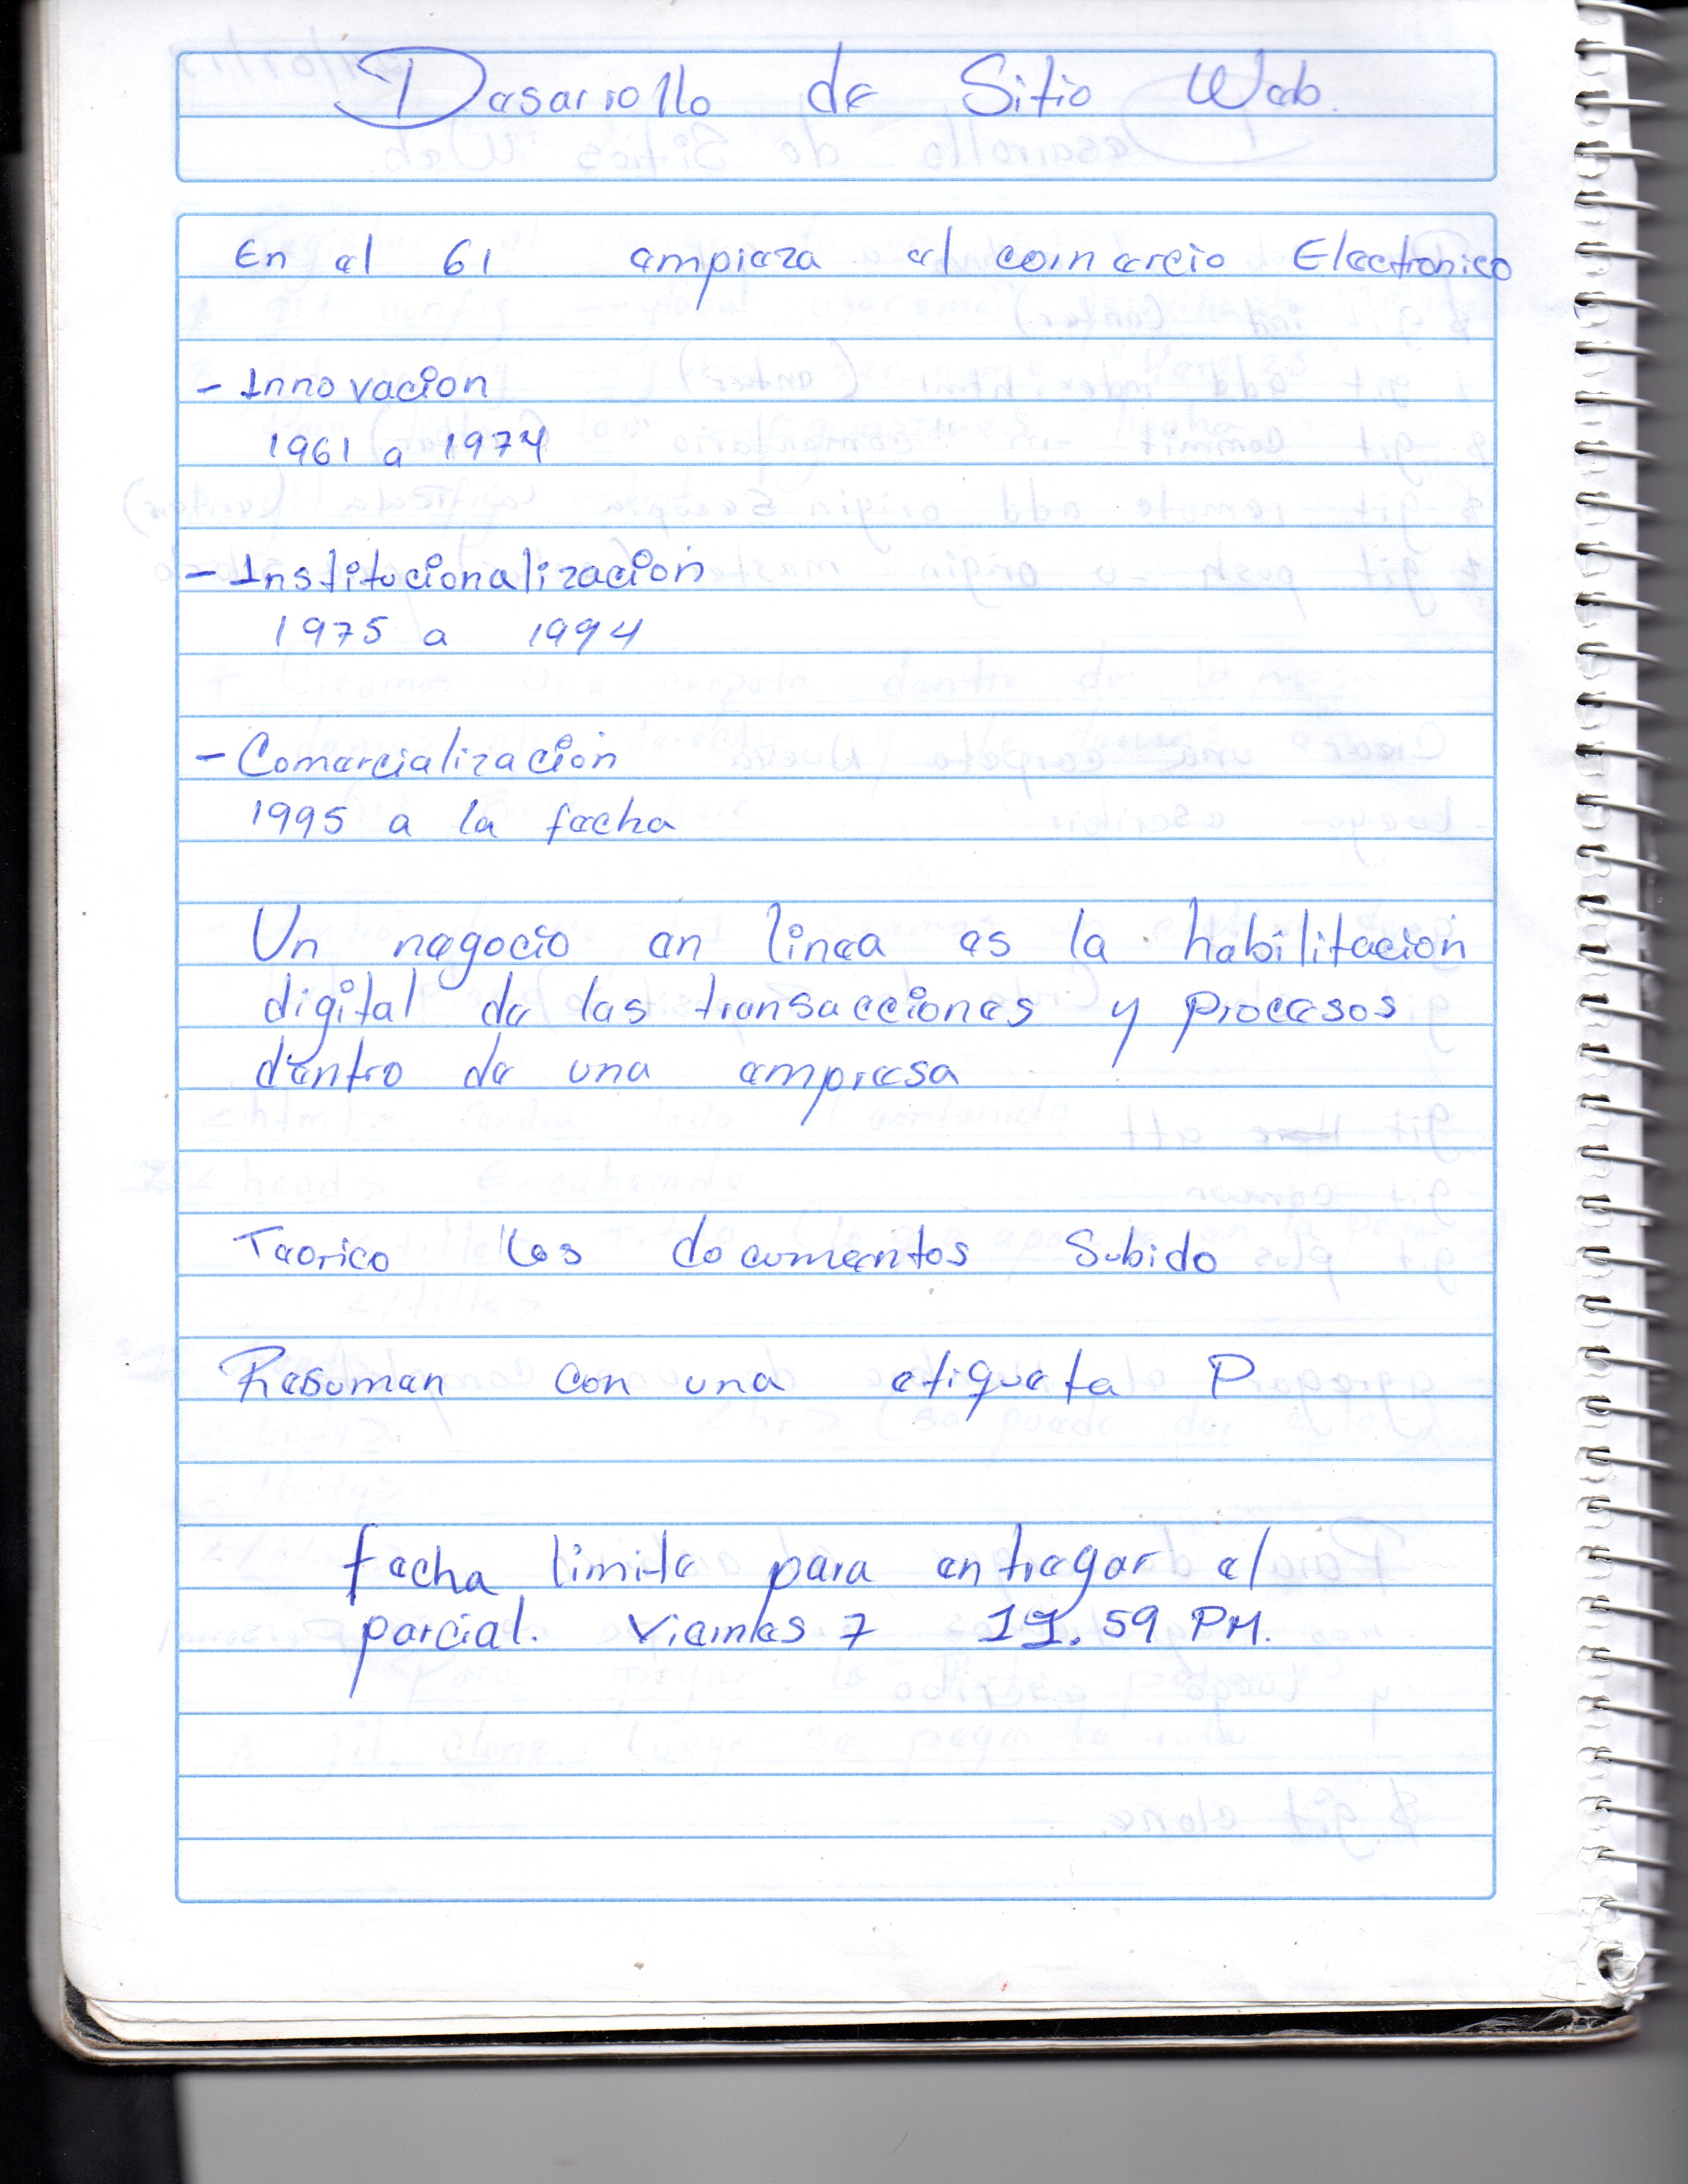 Desarrollo de Sitio Web.
En el 61 empieza el comercio Electronico
- Innovacion
1961 a 1974
- Institucionalizacion
1975 a 1994
- Comercialización
1995 a la fecha
Un negocio en linea es la habilitacion
digital de las transacciones y procesos
dentro de una empresa
Teorico los documentos Subido
Resuman con una etiqueta P
fecha limite para entregar el
parcial. Viernes 7 11.59 PM.